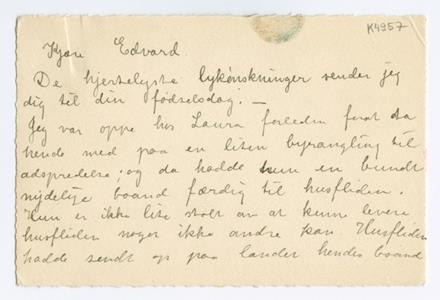 K4957
Kjære Edvard.
De hjerteligste lykønskninger sender jeg
dig til din fødselsdag. —
Jeg var oppe hos Laura forleden forat ta
hende med paa en liten byrangling til
adspredelse, og da hadde hun en bundt
nydelige baand færdig til husfliden.
Hun er ikke lite stolt av at kunne levere
husfliden noget ikke andre kan. Husfliden
hadde sendt op paa landet hendes baand